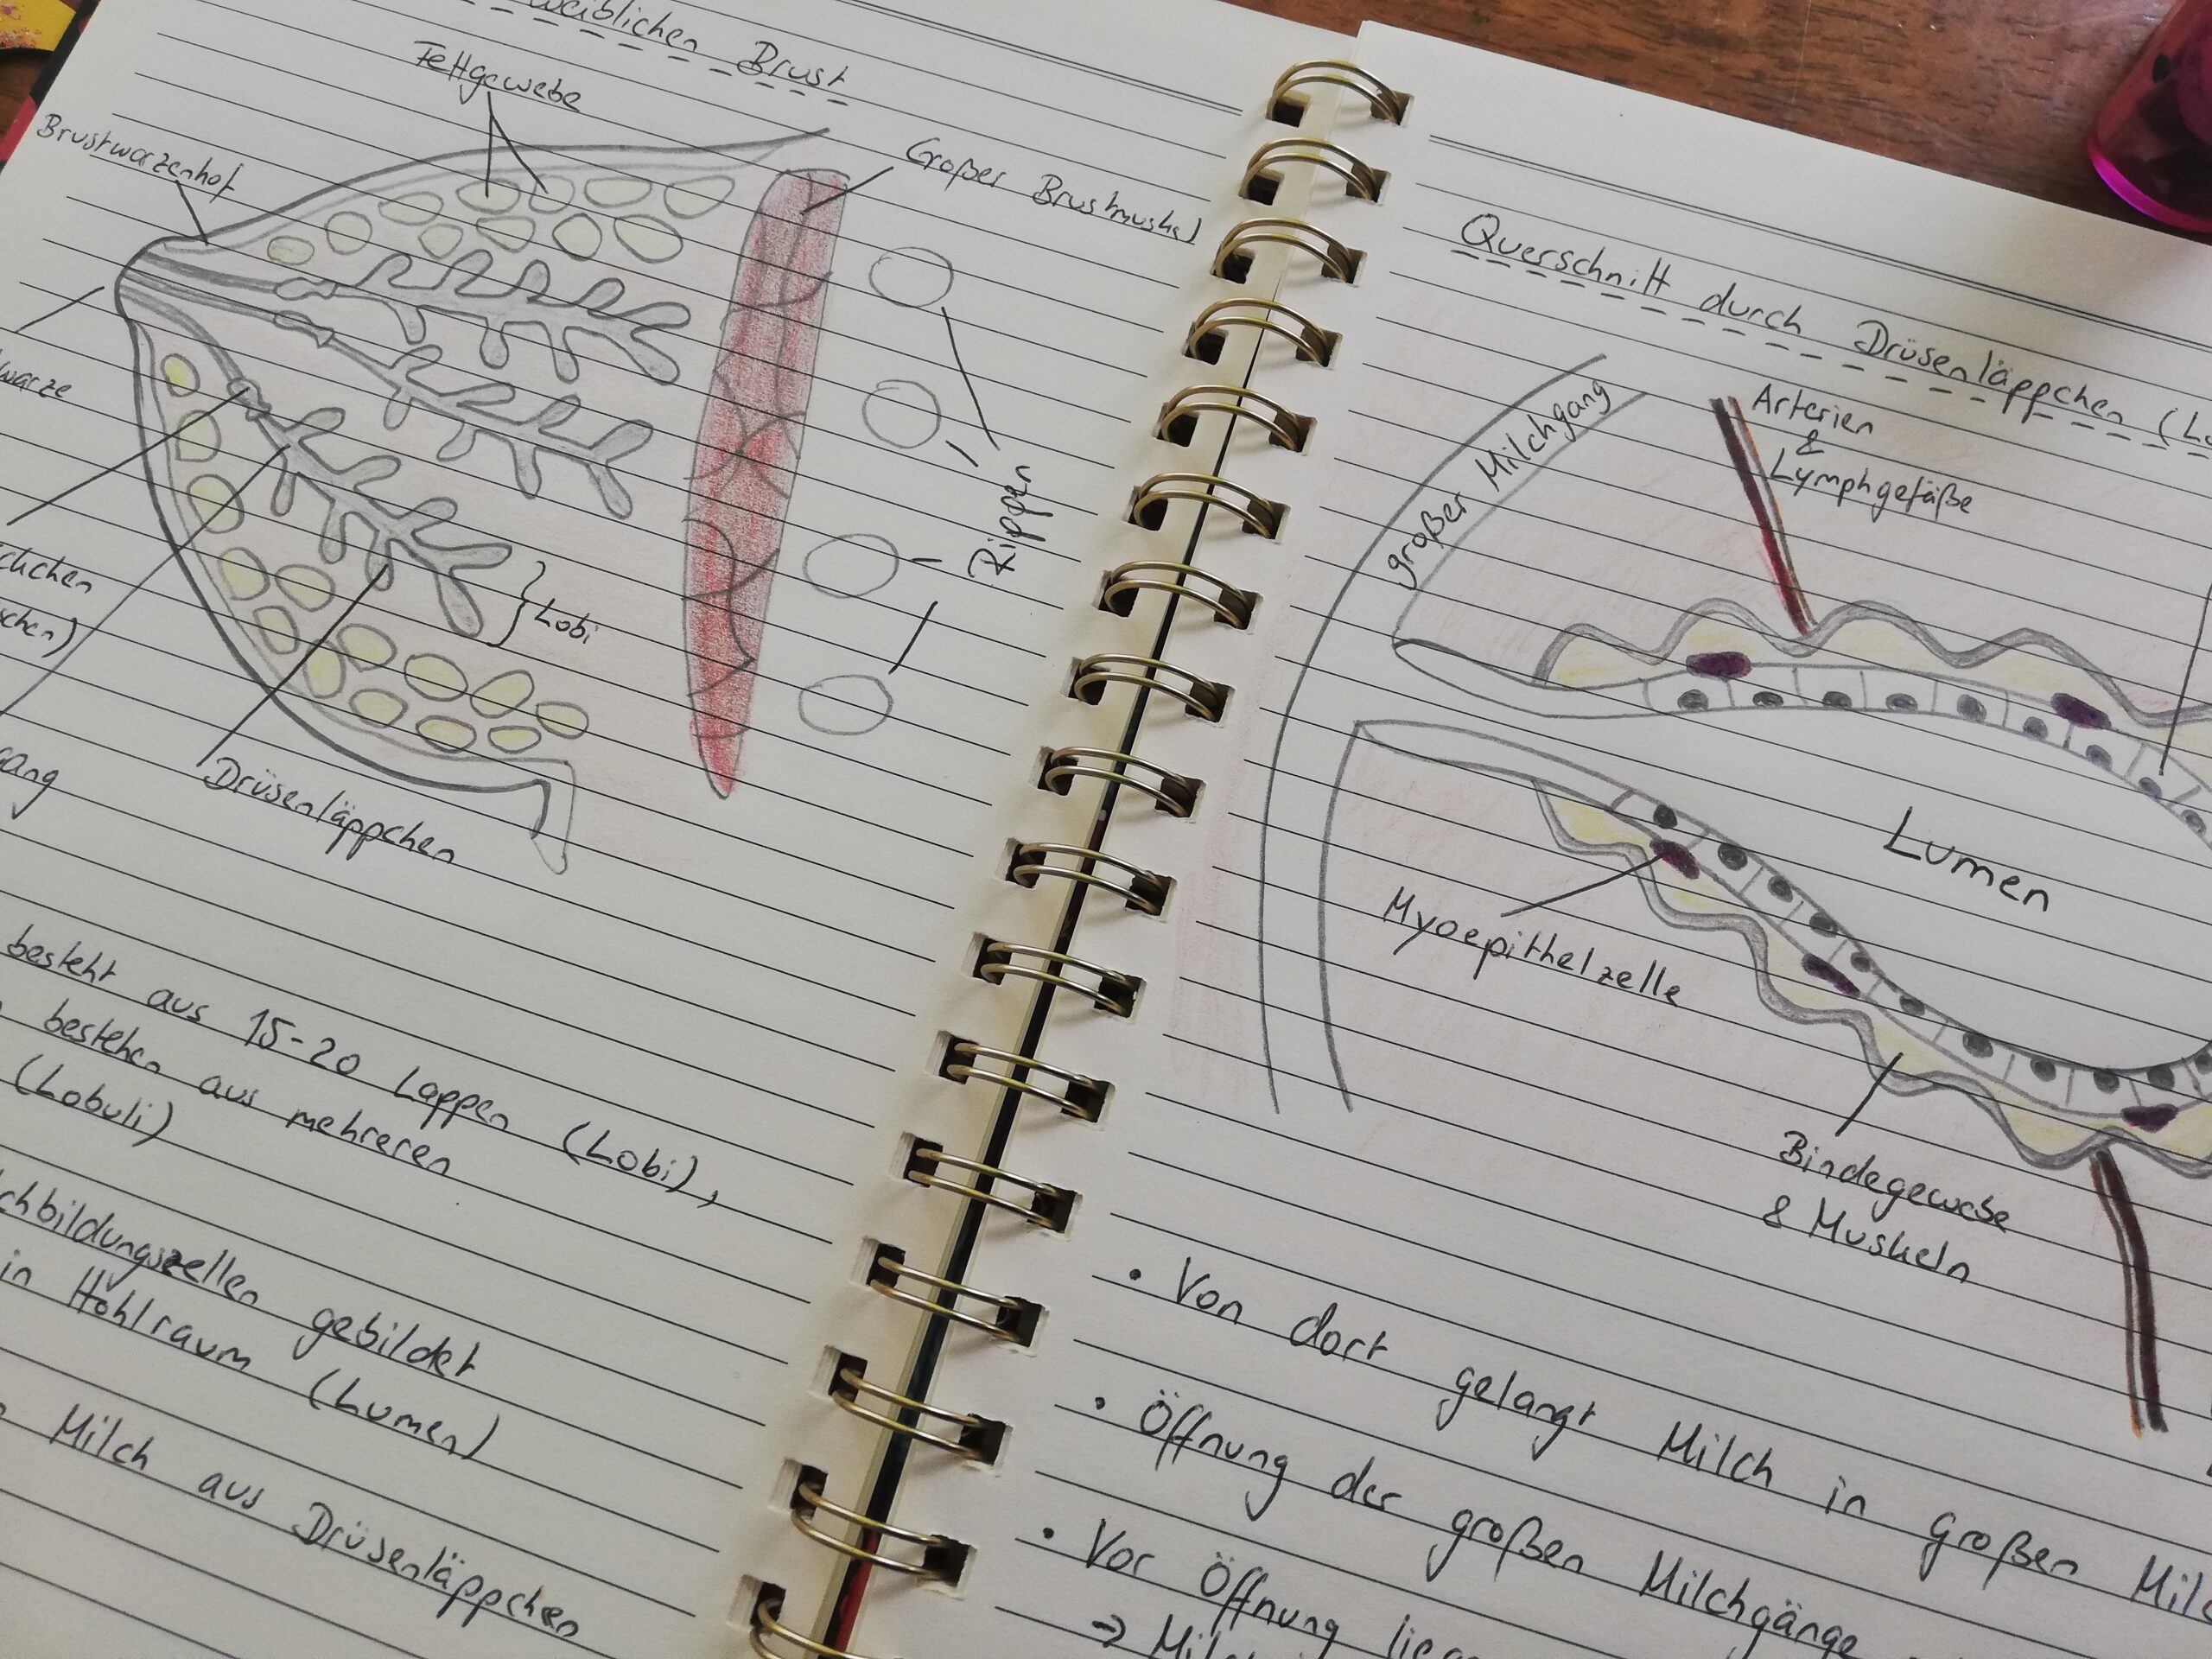 weiblichen Brust
Fettgewebe
Brustwarzenhof
Großer Brustmuskel
warze
Rippen
Lobi
Drüsenläppchen
besteht aus 15-20 Lappen (Lobi),
bestehen aus mehreren
(Lobuli)
chbildungszellen gebildet
in Hohlraum (Lumen)
Milch aus Drüsenläppchen
Querschnitt durch Drüsenläppchen
großer Milchgang
Arterien
&
Lymphgefäße
Lumen
Myoepithelzelle
Bindegewebe
& Muskeln
• Von dort gelangt Milch in großen
• Öffnung der großen Milchgänge
• Vor Öffnung